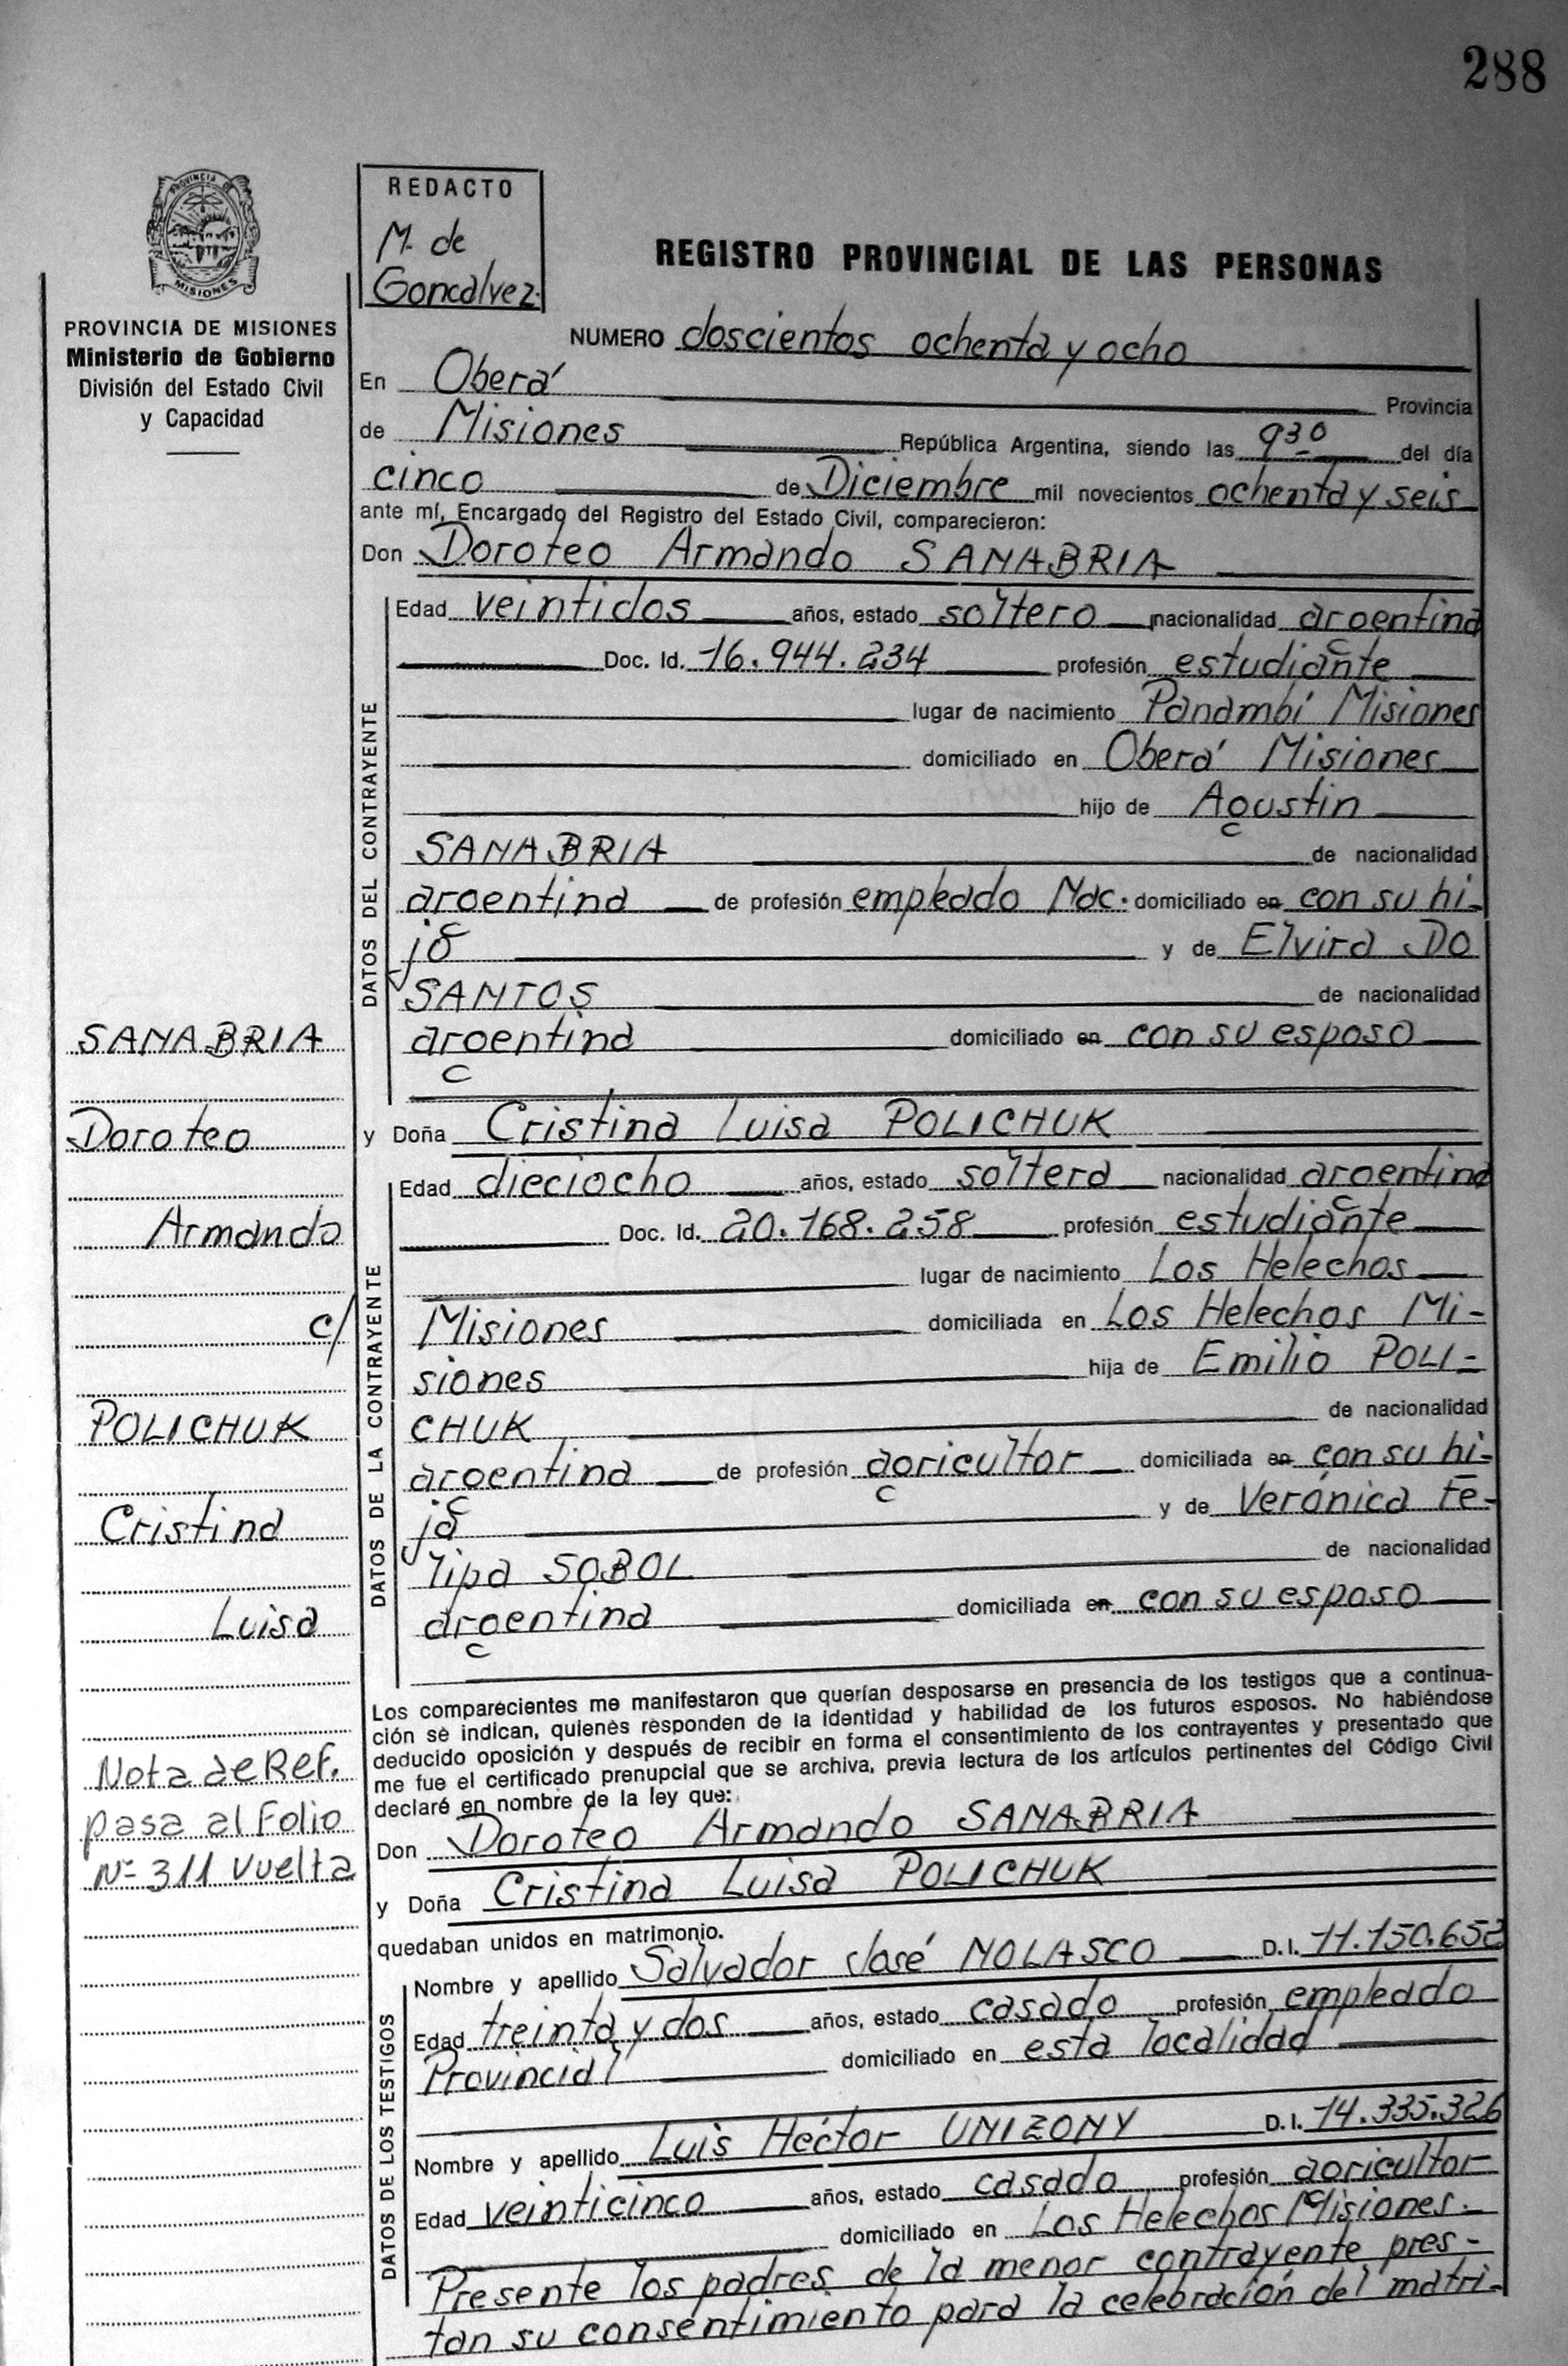 288
PROVINCIA DE
MISIONES
PROVINCIA DE MISIONES
Ministerio de Gobierno
División del Estado Civil
y Capacidad
REDACTO
M. de
Goncalvez.
REGISTRO PROVINCIAL DE LAS PERSONAS
NUMERO doscientos ochenta y ocho
En Oberá Provincia
de Misiones República Argentina, siendo las 9 30 del día
cinco de Diciembre mil novecientos ochenta y seis
ante mí, Encargado del Registro del Estado Civil, comparecieron:
Don Doroteo Armando SANABRIA
DATOS DEL CONTRAYENTE
Edad veintidos años, estado soltero nacionalidad argentina
Doc. Id. 16.944.234 profesión estudiante
lugar de nacimiento Panambí Misiones
domiciliado en Oberá Misiones
hijo de Agustin
SANABRIA de nacionalidad
argentina de profesión empleado Nac. domiciliado en con su hi-
jo y de Elvira DO
SANTOS de nacionalidad
argentina domiciliado en con su esposo
y Doña Cristina Luisa POLICHUK
DATOS DE LA CONTRAYENTE
Edad dieciocho años, estado soltera nacionalidad argentina
Doc. Id. 20.168.258 profesión estudiante
lugar de nacimiento Los Helechos
Misiones domiciliada en Los Helechos Mi-
siones hija de Emilio POLI-
CHUK de nacionalidad
argentina de profesión agricultor domiciliada en con su hi-
ja y de Verónica Fe-
lipa SOBOL de nacionalidad
argentina domiciliada en con su esposo
Los comparecientes me manifestaron que querían desposarse en presencia de los testigos que a continua-
ción se indican, quienes responden de la identidad y habilidad de los futuros esposos. No habiéndose
deducido oposición y después de recibir en forma el consentimiento de los contrayentes y presentado que
me fue el certificado prenupcial que se archiva, previa lectura de los artículos pertinentes del Código Civil
declaré en nombre de la ley que:
Don Doroteo Armando SANABRIA
y Doña Cristina Luisa POLICHUK
quedaban unidos en matrimonio.
DATOS DE LOS TESTIGOS
Nombre y apellido Salvador José NOLASCO D.I. 11.150.652
Edad treinta y dos años, estado casado profesión empleado
Provincial domiciliado en esta localidad
Nombre y apellido Luis Héctor UNIZONY D.I. 14.335.326
Edad veinticinco años, estado casado profesión agricultor
domiciliado en Los Helechos Misiones.
Presente los padres de la menor contrayente pres-
tan su consentimiento para la celebración del matri-
SANABRIA
Doroteo
Armando
c/
POLICHUK
Cristina
Luisa
Nota de Ref.
pasa al Folio
Nº 311 vuelta